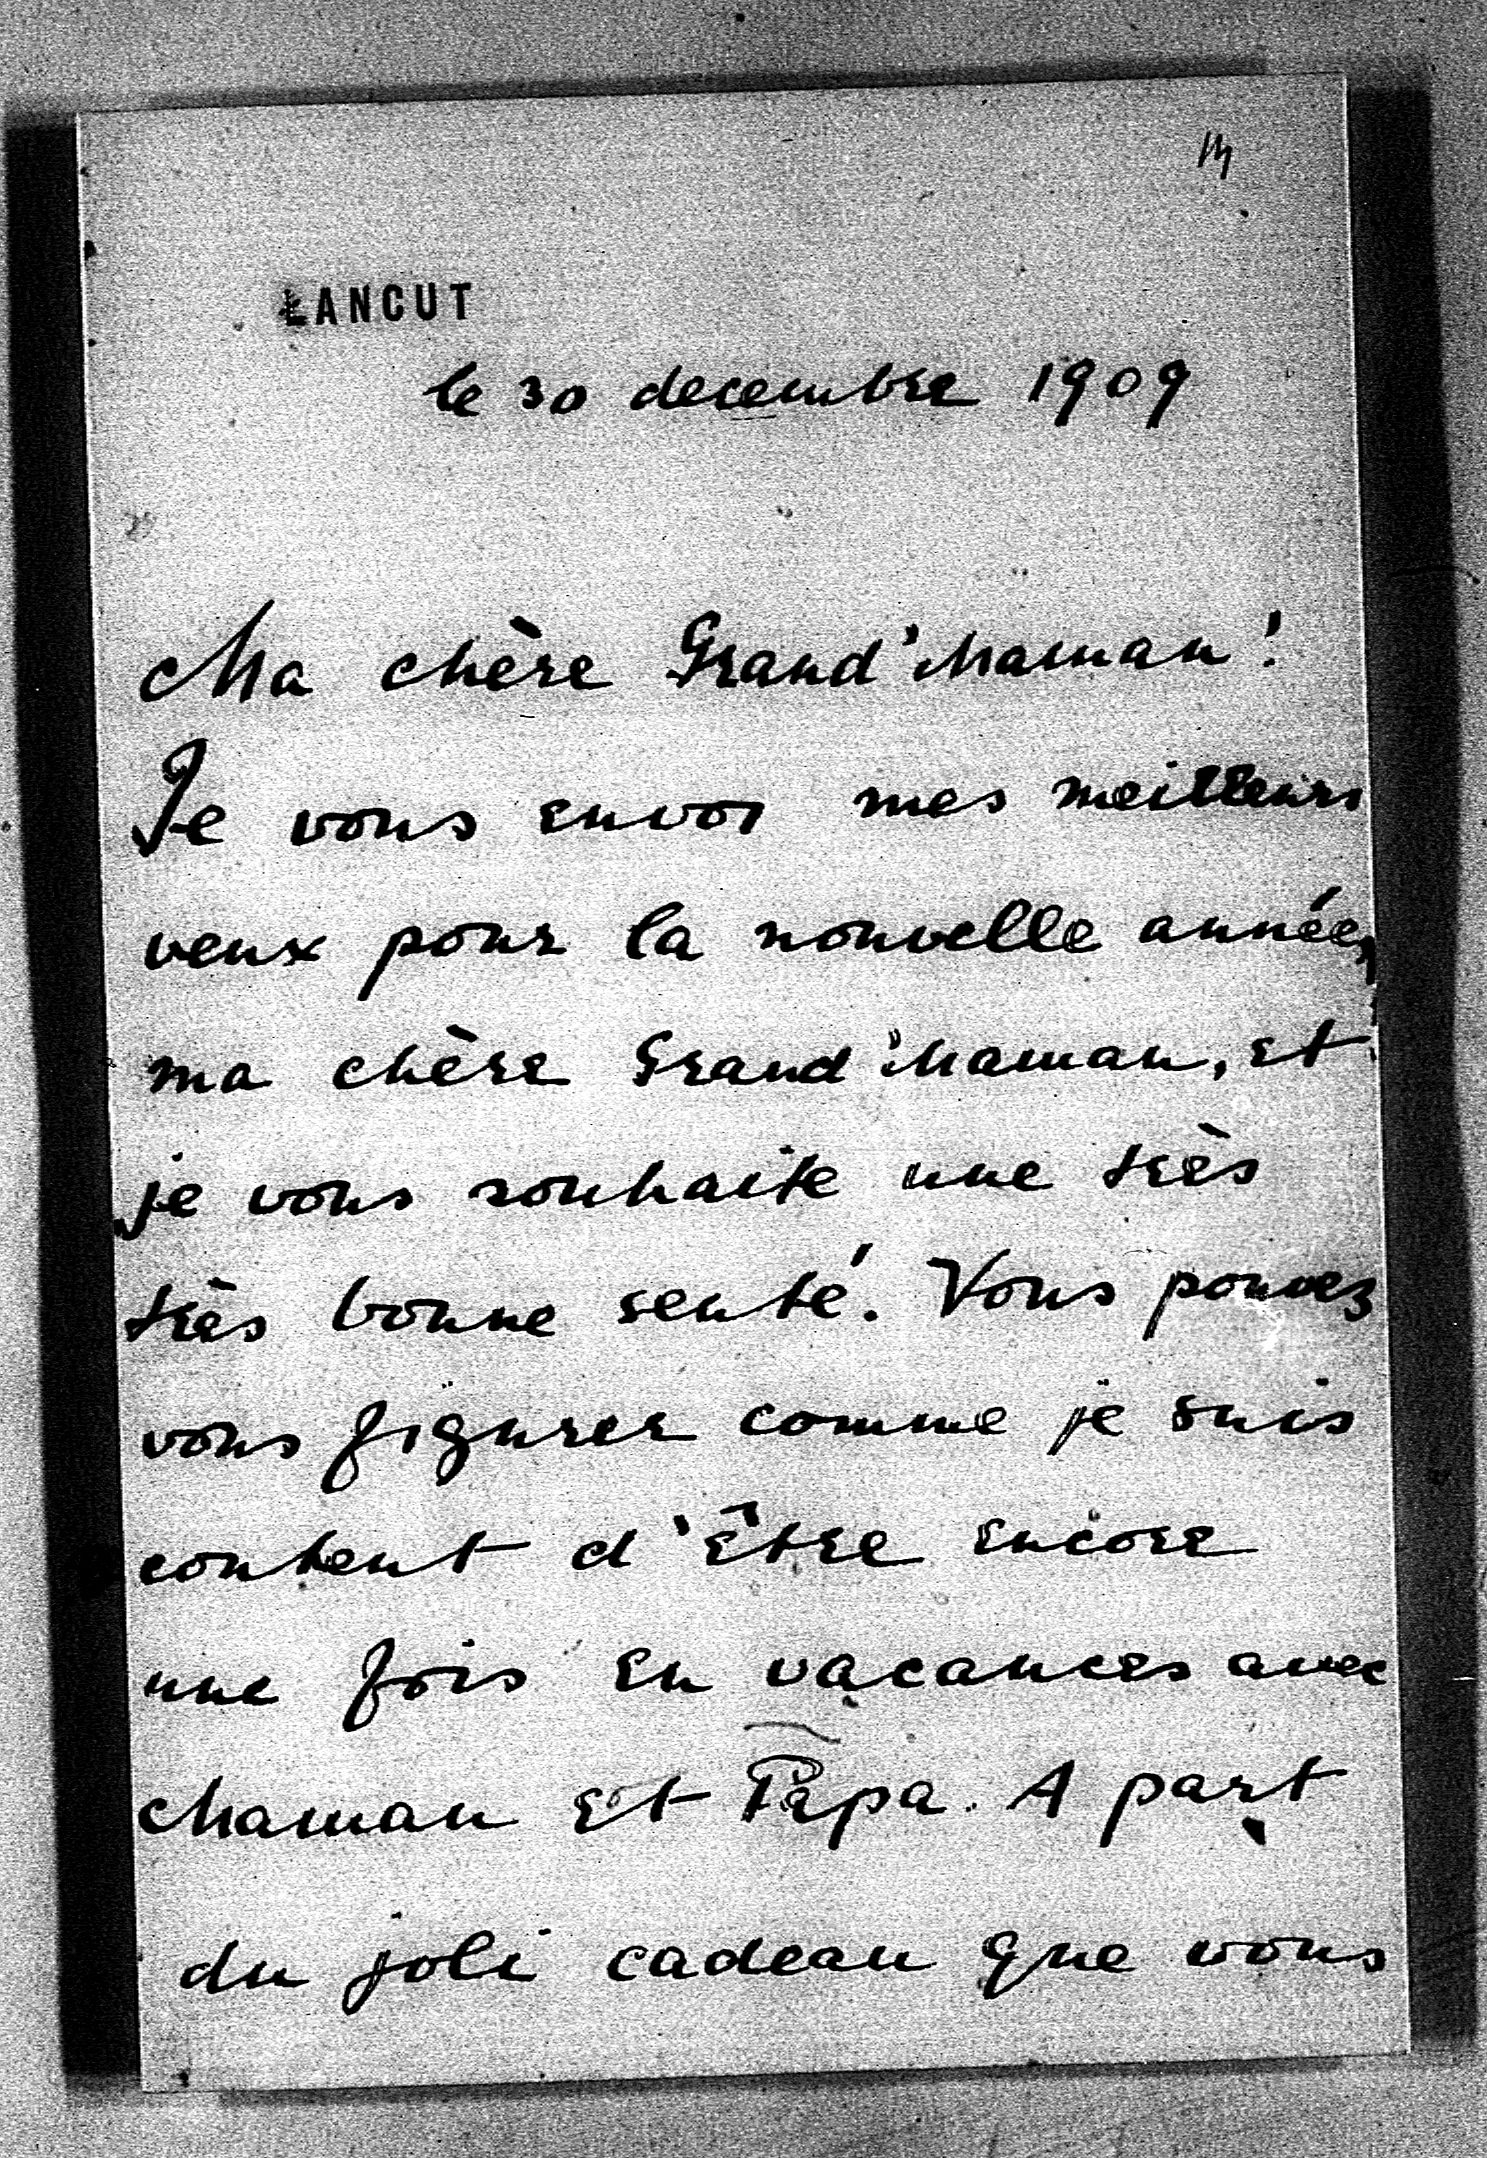 ŁANCUT
le 30 decembre 1909
Ma chère Grand'Maman!
Je vous envoi mes meilleurs
veux pour la nouvelle année,
ma chère Grand'Maman, et
je vous souhaite une très
très bonne senté. Vous pouvez
vous figurer comme je suis
content d'être encore
une fois en vacances avec
Maman et Papa. A part
du joli cadeau que vous